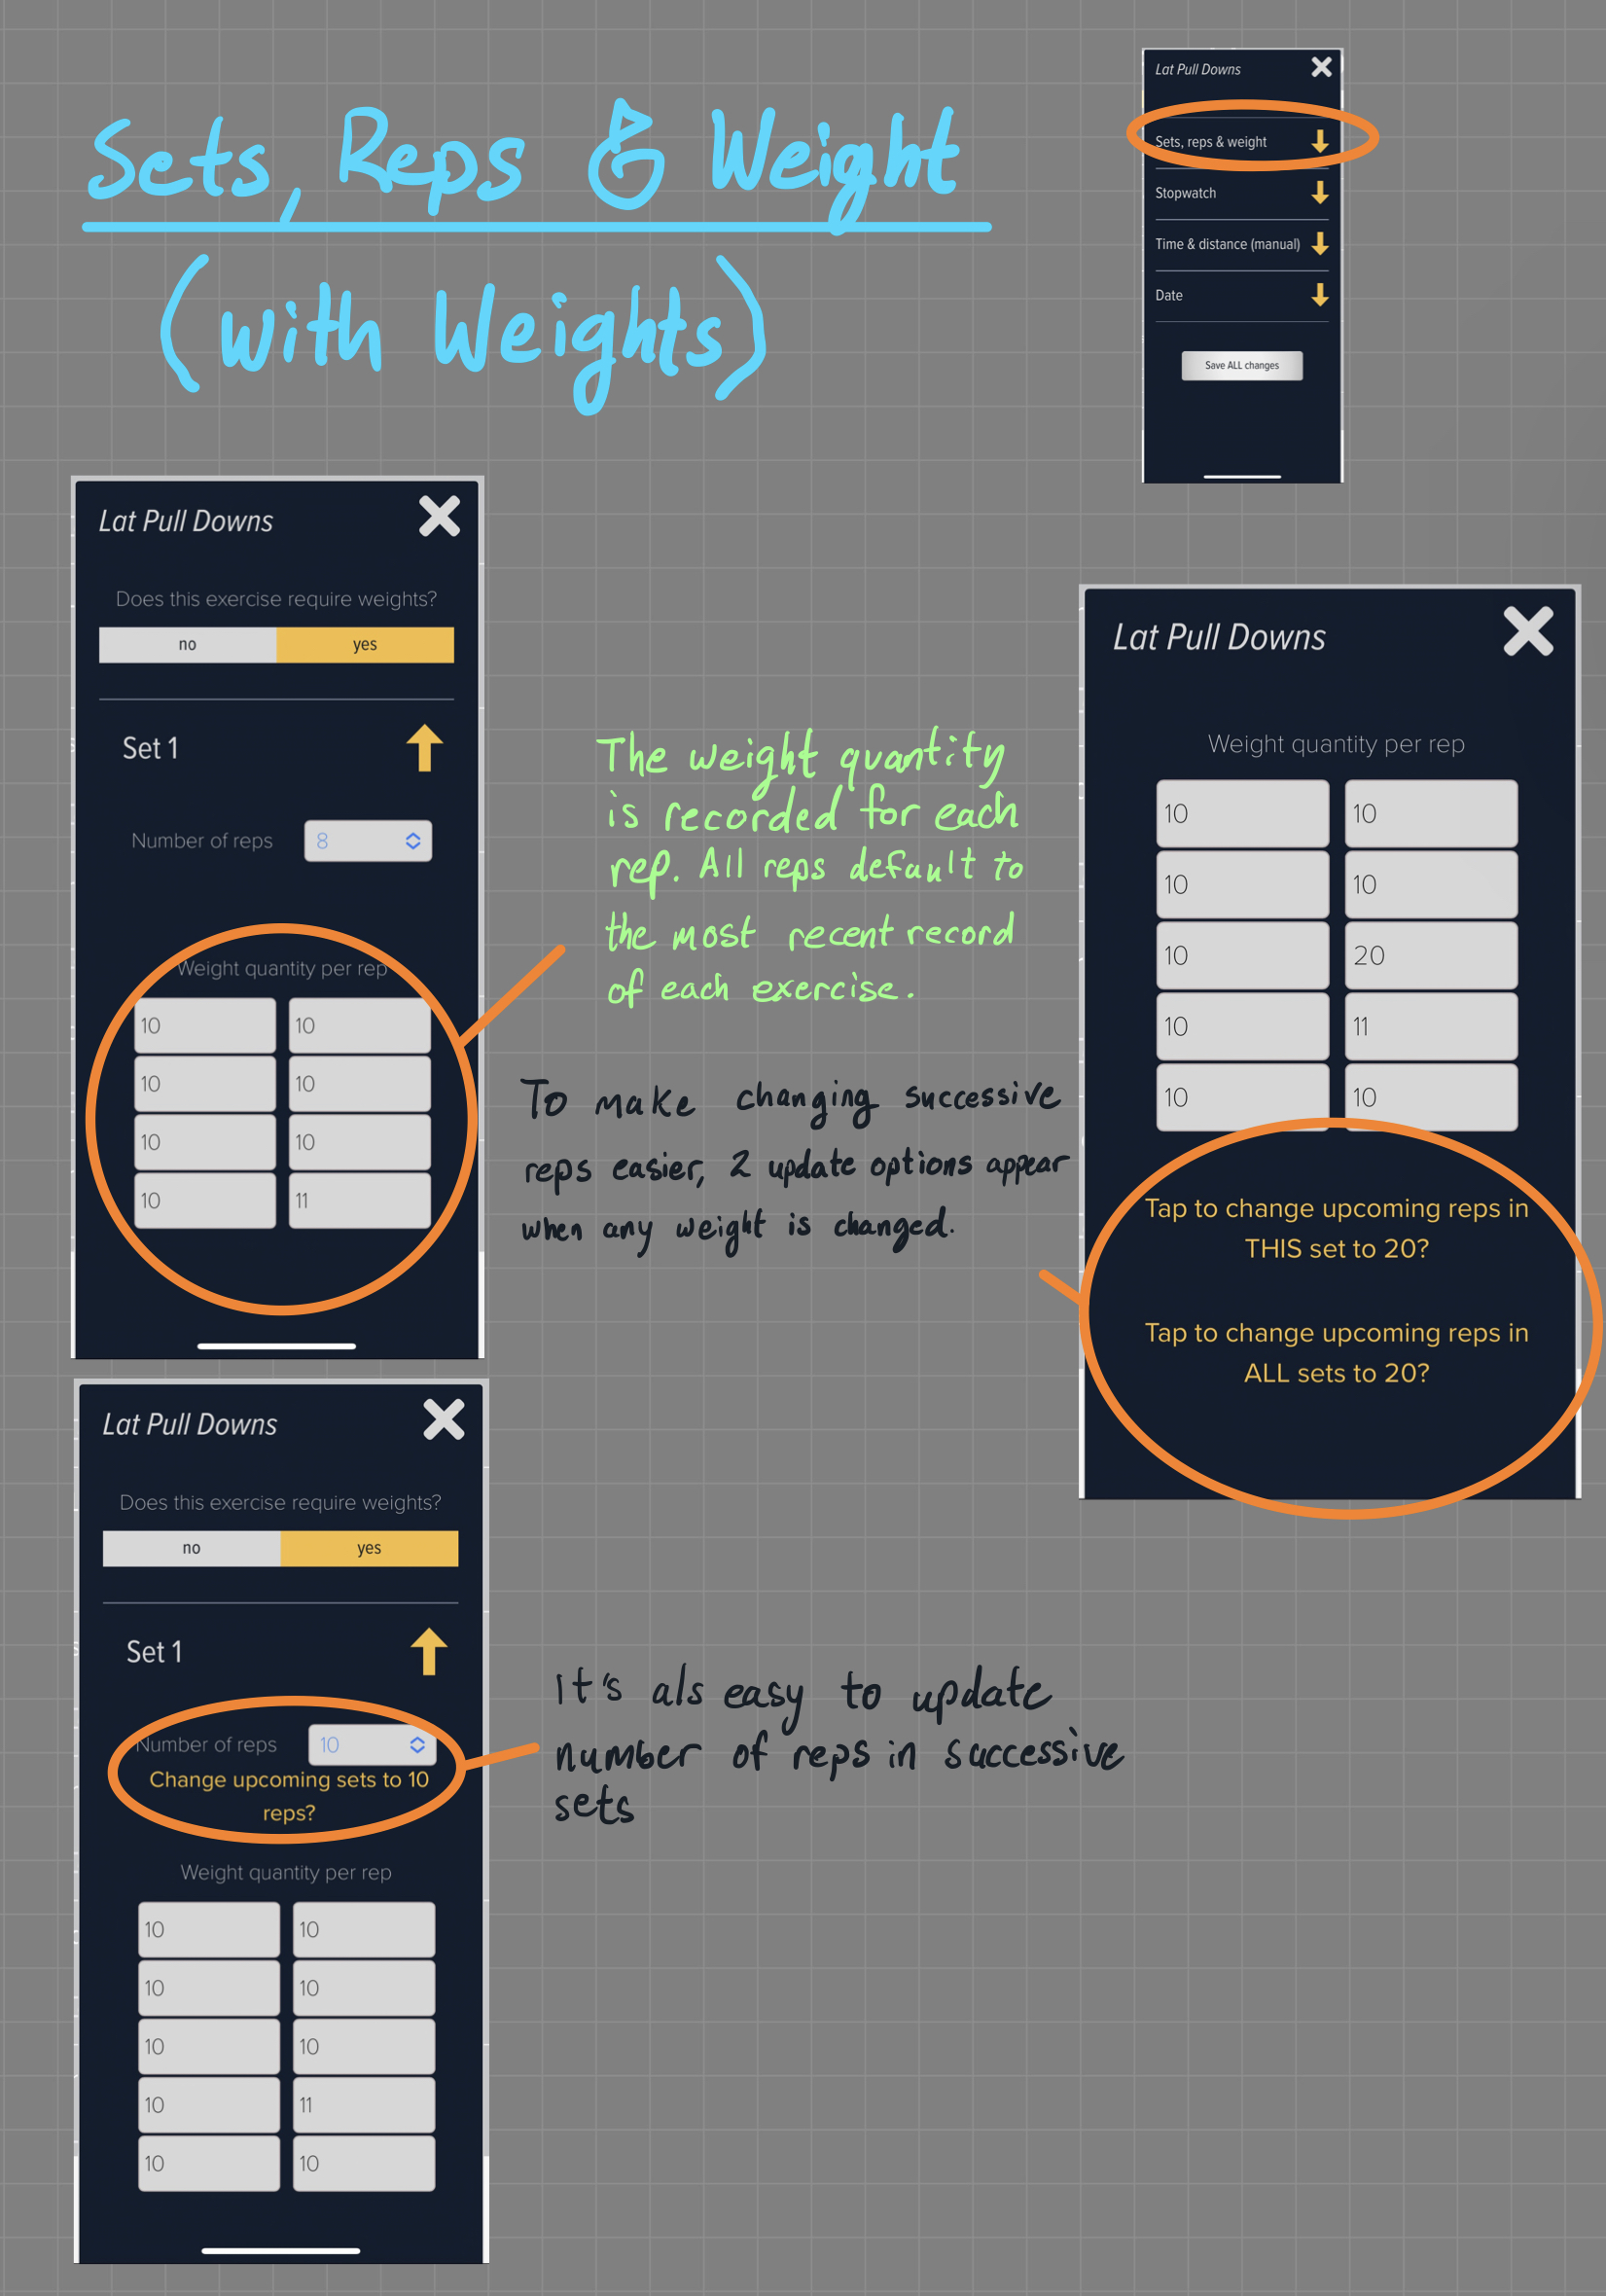 Sets, Reps & Weight
(with Weights)
Lat Pull Downs
Sets, reps & weight
Stopwatch
Time & distance (manual)
Date
Save ALL changes
Lat Pull Downs
Does this exercise require weights?
no yes
Set 1
Number of reps 8
Weight quantity per rep
10 10
10 10
10 10
10 11
The weight quantity
is recorded for each
rep. All reps default to
the most recent record
of each exercise.
To make changing successive
reps easier, 2 update options appear
when any weight is changed.
Lat Pull Downs
Weight quantity per rep
10 10
10 10
10 20
10 11
10 10
Tap to change upcoming reps in
THIS set to 20?
Tap to change upcoming reps in
ALL sets to 20?
Lat Pull Downs
Does this exercise require weights?
no yes
Set 1
Number of reps 10
Change upcoming sets to 10
reps?
Weight quantity per rep
10 10
10 10
10 10
10 11
10 10
It's als easy to update
number of reps in successive
sets